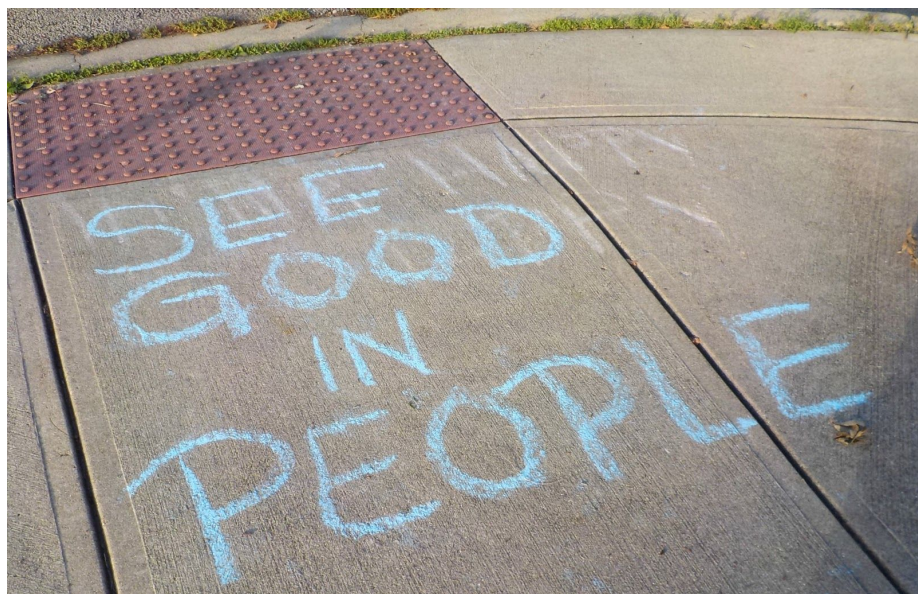 SEE
GOOD
IN
PEOPLE